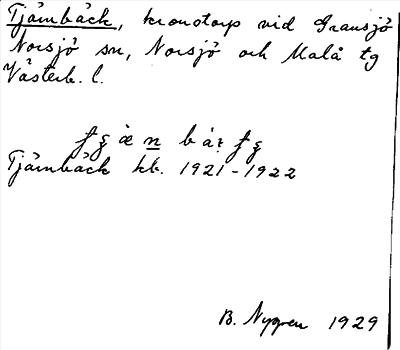 Tjärnbäck, kronotorp vid Gransjö
Norsjö sn, Norsjö och Malå tg
Västerb. l.
Tjärnbäck kb. 1921-1922
B. Nygren 1929